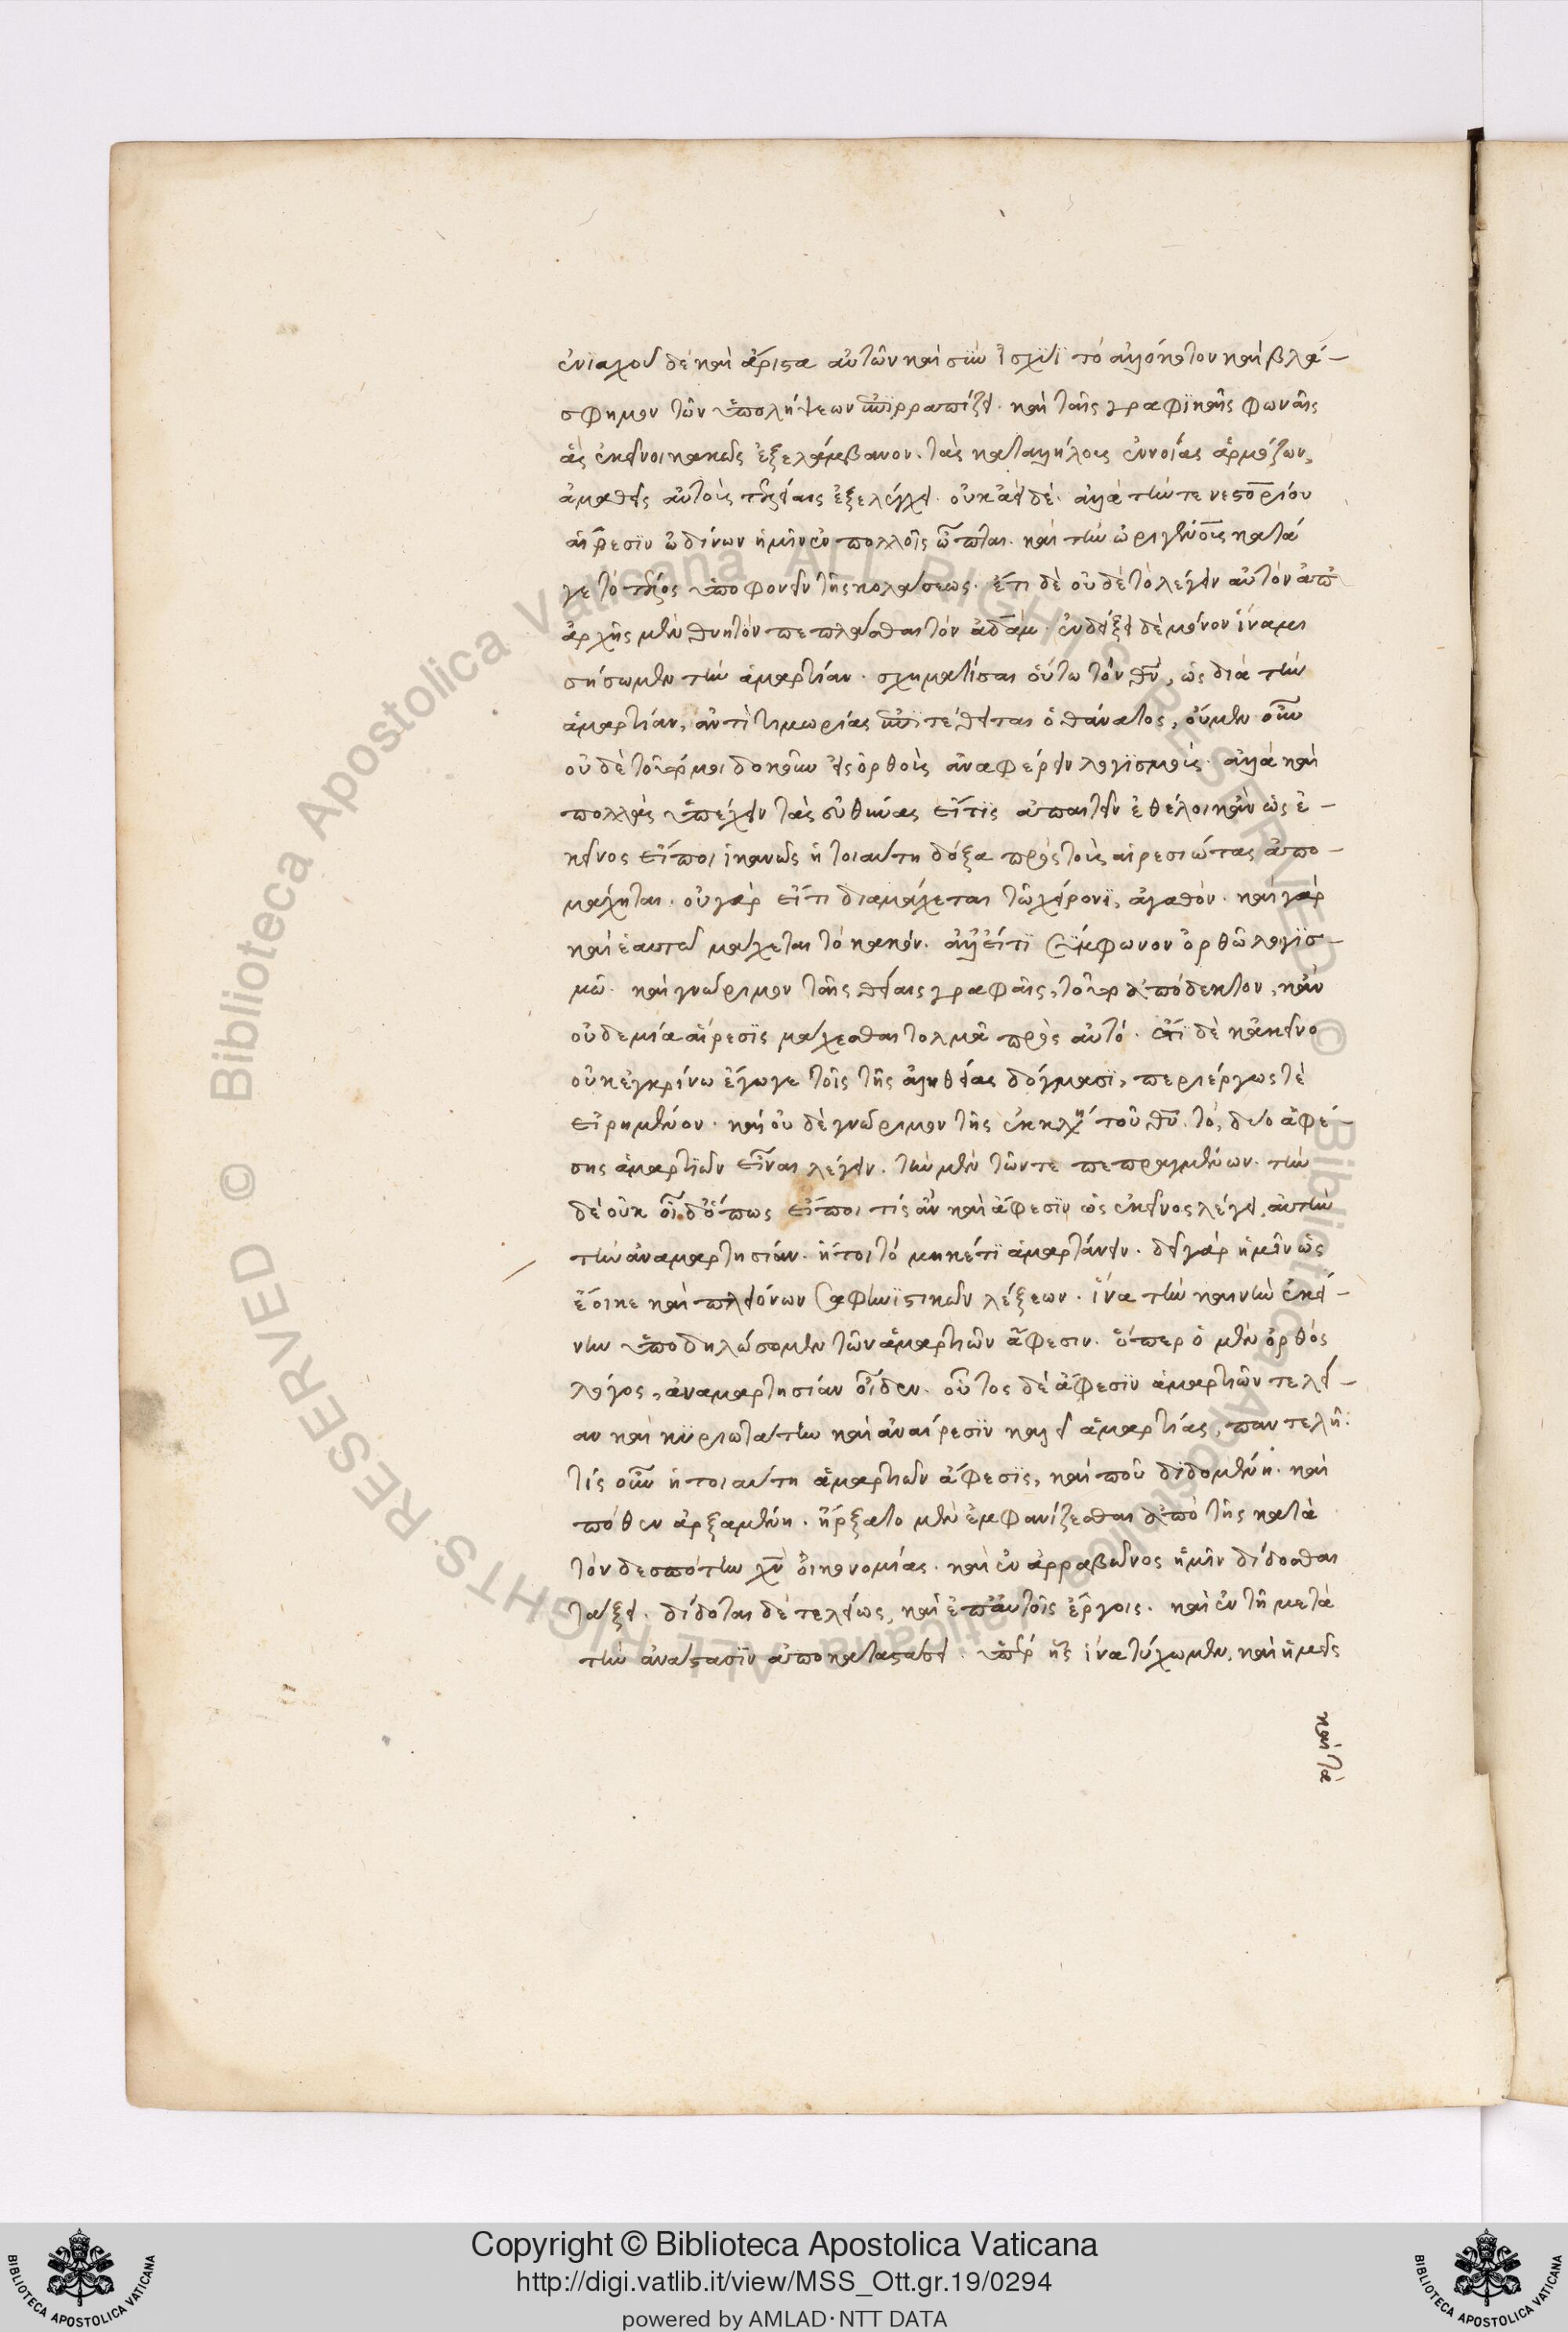 ἐνιαχοῦ δὲ καὶ ἄριστα αὐτῶν καὶ σὺν ἰσχύϊ τὸ ἀνόητον καὶ βλά-
σφημον τῶν ὑπολήψεων ἐπιρραπίζει. καὶ ταῖς γραφικαῖς φωναῖς
ἃς ἐκεῖνοι κακῶς ἐξελάμβανον. τὰς καταλλήλους ἐννοίας ἁρμόζων,
ἀμαθεῖς αὐτοὺς τελείως ἐξελέγχει. οὐκ ἀεὶ δὲ. ἀλλὰ τήν τε νεστορίου
αἵρεσϊν ὠδίνων ἡμῖν ἐν πολλοῖς ὦπται. καὶ τὴν ὠριγένους κατά
γε τὸ τέλος ὑποφωνεῖν τῆς κολάσεως. ἔτι δὲ οὐδὲ τὸ λέγειν αὐτὸν ἀπ'
ἀρχῆς μὲν θνητὸν πεπλάσθαι τὸν ἀδάμ. ἐνδείξει δὲ μόνον ἵνα μι
σήσωμεν τὴν ἁμαρτίαν. σχηματίσαι οὕτω τὸν θν, ὡς διὰ τὴν
ἁμαρτίαν, ἀντὶ τιμωρίας ἐπιτέθειται ὁ θάνατος, οὔμεν οὖν
οὐδὲ τοῦτό μοι δοκοῦν εἰς ὀρθοὺς ἀναφέρειν λογϊσμούς. ἀλλὰ καὶ
πολλὰς ὑπέχειν τὰς εὐθύνας εἴ τϊς ἀπαιτεῖν ἐθέλοι κἂν ὡς ἐ-
κεῖνος εἴποι ἱκανῶς ἡ τοιαύτη δόξα πρὸς τοὺς αἱρεσιώτας ἀπο-
μάχηται. οὐ γὰρ εἴ τι διαμάχεται τῷ χείρονϊ, ἀγαθόν. καὶ γὰρ
καὶ ἑαυτῷ μάχεται τὸ κακόν. ἀλλ' εἴ τϊ σύμφωνον ὀρθῷ λογϊσ-
μῷ. καὶ γνώριμον ταῖς θείαις γραφαῖς, τοῦτο ἀπόδεκτον, κἂν
οὐδεμία αἵρεσϊς μάχεσθαι τολμᾶ πρὸς αὐτό. ἔτϊ δὲ κἀκεῖνο
οὐκ ἐγκρίνω ἔγωγε τοῖς τῆς ἀληθείας δόγμασϊ, περιέργως τὲ
εἰρημένον. καὶ οὐδὲ γνώριμον τῆς ἐκκλη τοῦ θυ. τὸ, δύο ἀφέ-
σης ἁμαρτϊῶν εἶναι λέγειν. τὴν μὲν τῶν τε πεπραγμένων. τὴν
δὲ οὐκ οἶδ' ὅπως εἴποι τίς ἂν καὶ ἄφεσϊν ὡς ἐκεῖνος λέγει, αὐτὴν
τὴν ἀναμαρτησίαν. ἤτοι τὸ μηκέτϊ ἁμαρτάνειν. δεῖ γὰρ ἡμῖν ὡς
ἔοικε καὶ πλειόνων σαφηνϊστικῶν λέξεων. ἵνα τὴν καινὴν ἐκεί-
νην ὑποδηλώσομεν τῶν ἁμαρτιῶν ἄφεσιν. ὅπερ ὁ μὲν ὀρθὸς
λόγος, ἀναμαρτησίαν οἶδεν. οὗτος δὲ ἄφεσϊν ἁμαρτιῶν τελεί-
αν καὶ κϋριωτάτην καὶ ἀναίρεσϊν καλεῖ ἁμαρτίας, παντελῆ.
τίς οὖν ἡ τοιαύτη ἁμαρτιῶν ἄφεσϊς, καὶ ποῦ διδομένη. καὶ
πόθεν ἀρξαμένη. ἤρξατο μὲν ἐμφανίζεσθαι ἀπὸ τῆς κατὰ
τὸν δεσπότην χν οἰκονομίας. καὶ ἐν ἀρραβῶνος ἡμῖν δίδοσθαι
τάξει. δίδοται δὲ τελείως, καὶ ἐπ' αὐτοῖς ἔργοις. καὶ ἐν τῇ μετὰ
τὴν ἀνάστασϊν ἀποκαταστάσει. ὑπὲρ ἧς ἵνα τύχωμεν, καὶ ἡμεῖς
καὶ τὰ
Copyright © Biblioteca Apostolica Vaticana
http://digi.vatlib.it/view/MSS_Ott.gr.19/0294
powered by AMLAD·NTT DATA
BIBLIOTECA APOSTOLICA VATICANA
BIBLIOTECA APOSTOLICA VATICANA
© Biblioteca Apostolica Vaticana ALL RIGHTS RESERVED
© Biblioteca Apostolica Vaticana ALL RIGHTS RESERVED